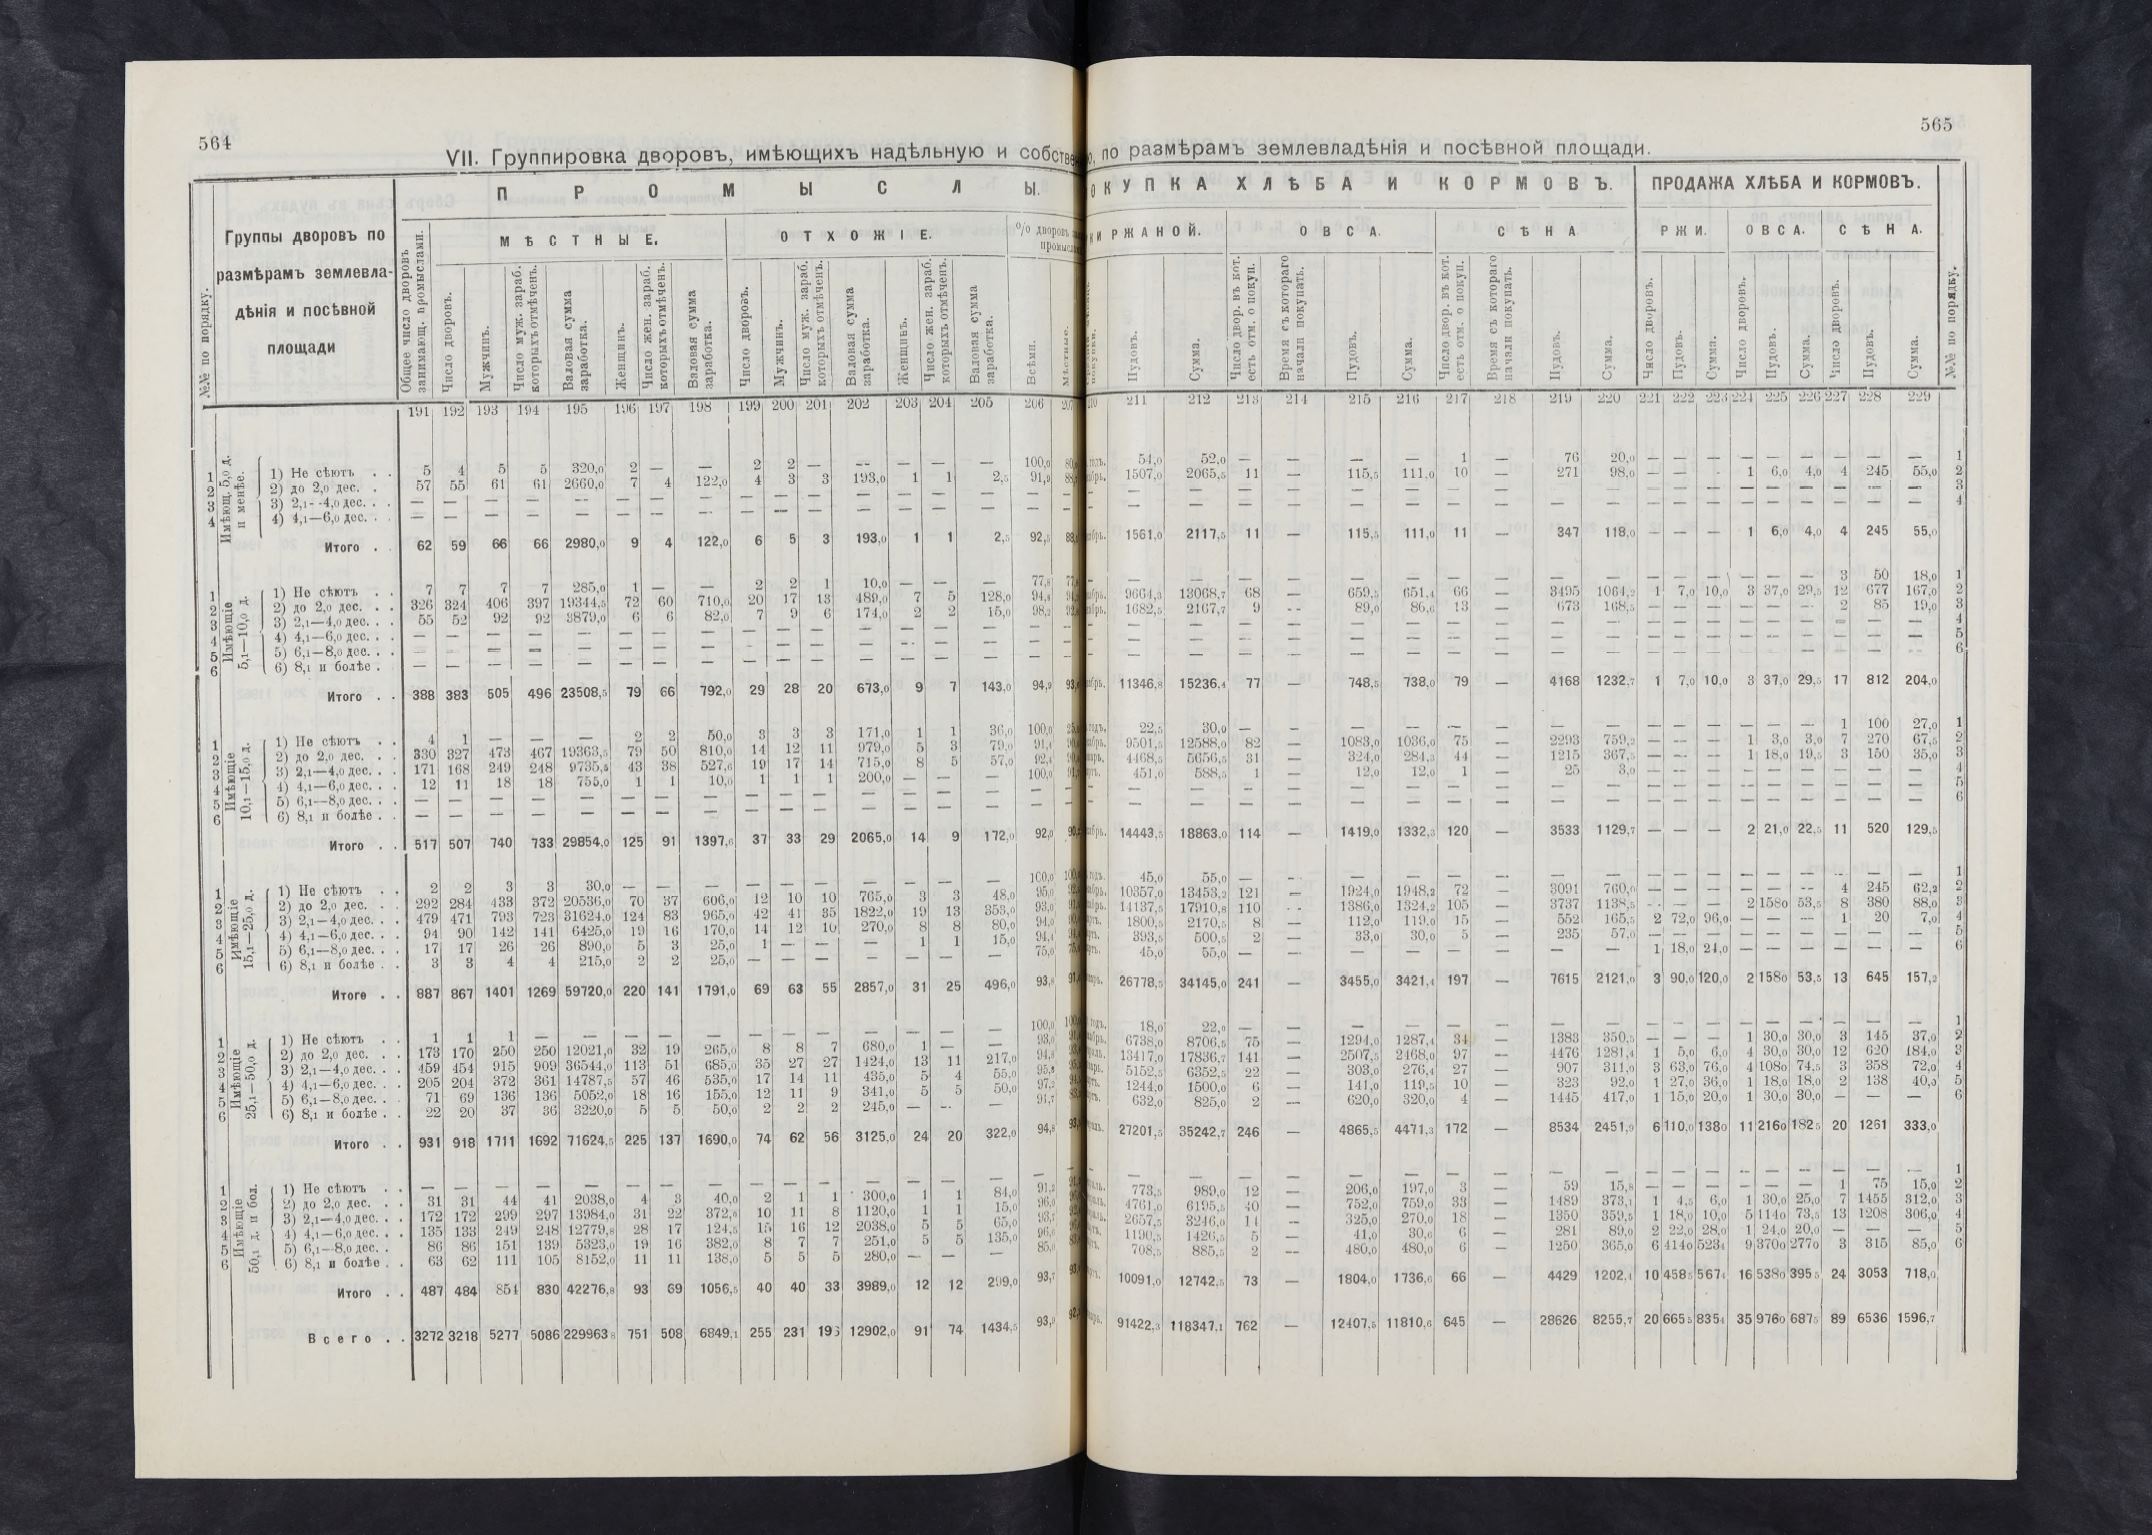 564
VII. Группировка дворовъ, имѣющихъ надѣльную и собстве
№№ по порядку.
Группы дворовъ по
размѣрамъ землевла-
дѣнія и посѣвной
площади
П Р О М Ы С Л Ы.
Общее число дворовъ занимающ. промыслами.
М Ѣ С Т Н Ы Е.
О Т Х О Ж І Е.
Число дворовъ.
Мужчинъ.
Число муж. зараб. которыхъ отмѣченъ.
Валовая сумма заработка.
Женщинъ.
Число жен. зараб. которыхъ отмѣченъ.
Валовая сумма заработка.
Число дворовъ.
Мужчинъ.
Число муж. зараб. которыхъ отмѣченъ.
Валовая сумма заработка.
Женщинъ.
Число жен. зараб. которыхъ отмѣченъ.
Валовая сумма заработка.
% дворовъ
Всѣми.
191 192 193 194 195 196 197 198 199 200 201 202 203 204 205 206 207
Имѣющ. 5,0 д. и менѣе.
1 1) Не сѣютъ . . 5 4 5 5 320,0 2 — — 2 2 — — — — — 100,0
2 2) до 2,0 дес. . 57 55 61 61 2660,0 7 4 122,0 4 3 3 193,0 1 1 2,5 91,9
3 3) 2,1—4,0 дес. . . — — — — — — — — — — — — — — — —
4 4) 4,1—6,0 дес. . . — — — — — — — — — — — — — — — —
Итого . . 62 59 66 66 2980,0 9 4 122,0 6 5 3 193,0 1 1 2,5 92,5
Имѣющіе 5,1—10,0 д.
1 1) Не сѣютъ . . 7 7 7 7 285,0 1 — — 2 2 1 10,0 — — — 77,8
2 2) до 2,0 дес. . . 326 324 406 397 19344,5 72 60 710,0 20 17 13 489,0 7 5 128,0 94,8
3 3) 2,1—4,0 дес. . . 55 52 92 92 3879,0 6 6 82,0 7 9 6 174,0 2 2 15,0 98,2
4 4) 4,1—6,0 дес. . . — — — — — — — — — — — — — — — —
5 5) 6,1—8,0 дес. . . — — — — — — — — — — — — — — — —
6 6) 8,1 и болѣе . — — — — — — — — — — — — — — — —
Итого . . 388 383 505 496 23508,5 79 66 792,0 29 28 20 673,0 9 7 143,0 94,9
Имѣющіе 10,1—15,0 д.
1 1) Не сѣютъ . . 4 1 — — — 2 2 50,0 3 3 3 171,0 1 1 36,0 100,0
2 2) до 2,0 дес. . . 330 327 473 467 19363,5 79 50 810,0 14 12 11 979,0 5 3 79,0 91,4
3 3) 2,1—4,0 дес. . . 171 168 249 248 9735,5 43 38 527,6 19 17 14 715,0 8 5 57,0 92,4
4 4) 4,1—6,0 дес. . . 12 11 18 18 755,0 1 1 10,0 1 1 1 200,0 — — — 100,0
5 5) 6,1—8,0 дес. . . — — — — — — — — — — — — — — — —
6 6) 8,1 и болѣе . . — — — — — — — — — — — — — — — —
Итого . . 517 507 740 733 29854,0 125 91 1397,6 37 33 29 2065,0 14 9 172,0 92,0
Имѣющіе 15,1—25,0 д.
1 1) Не сѣютъ . . 2 2 3 3 30,0 — — — — — — — — — — 100,0
2 2) до 2,0 дес. . . 292 284 433 372 20536,0 70 37 606,0 12 10 10 765,0 3 3 48,0 95,0
3 3) 2,1—4,0 дес. . . 479 471 793 723 31624,0 124 83 965,0 42 41 35 1822,0 19 13 353,0 93,0
4 4) 4,1—6,0 дес. . . 94 90 142 141 6425,0 19 16 170,0 14 12 10 270,0 8 8 80,0 94,0
5 5) 6,1—8,0 дес. . . 17 17 26 26 890,0 5 3 25,0 1 — — — 1 1 15,0 94,4
6 6) 8,1 и болѣе . . 3 3 4 4 215,0 2 2 25,0 — — — — — — — 75,0
Итого . . 887 867 1401 1269 59720,0 220 141 1791,0 69 63 55 2857,0 31 25 496,0 93,8
Имѣющіе 25,1—50,0 д.
1 1) Не сѣютъ . . 1 1 1 — — — — — — — — — — — — 100,0
2 2) до 2,0 дес. . . 173 170 250 250 12021,0 32 19 265,0 8 8 7 680,0 1 — — 93,0
3 3) 2,1—4,0 дес. . . 459 454 915 909 36544,0 113 51 685,0 35 27 27 1424,0 13 11 217,0 94,8
4 4) 4,1—6,0 дес. . . 205 204 372 361 14787,5 57 46 535,0 17 14 11 435,0 5 4 55,0
5 5) 6,1—8,0 дес. . . 71 69 136 136 5052,0 18 16 155,0 12 11 9 341,0 5 5 50,0
6 6) 8,1 и болѣе . . 22 20 37 36 3220,0 5 5 50,0 2 2 2 245,0 — — — 91,7
Итого . . 931 918 1711 1692 71624,5 225 137 1690,0 74 62 56 3125,0 24 20 322,0 94,8
Имѣющіе 50,1 д. и бол.
1 1) Не сѣютъ . . — — — — — — — — — — — — — — — —
2 2) до 2,0 дес. . . 31 31 44 41 2038,0 4 3 40,0 2 1 1 300,0 1 1 84,0 91,2
3 3) 2,1—4,0 дес. . . 172 172 299 297 13984,0 31 22 372,0 10 11 8 1120,0 1 1 15,0 96,0
4 4) 4,1—6,0 дес. . . 135 133 249 248 12779,8 28 17 124,5 15 16 12 2038,0 5 5 65,0
5 5) 6,1—8,0 дес. . 86 86 151 139 5323,0 19 16 382,0 8 7 7 251,0 5 5 135,0
6 6) 8,1 и болѣе . . 63 62 111 105 8152,0 11 11 138,0 5 5 5 280,0 — — — 85,0
Итого . . 487 484 854 830 42276,8 93 69 1056,5 40 40 33 3989,0 12 12 299,0 93,7
Всего . . 3272 3218 5277 5086 229963,8 751 508 6849,1 255 231 196 12902,0 91 74 1434,5 93,9
565
, по размѣрамъ землевладѣнія и посѣвной площади.
О К У П К А Х Л Ѣ Б А И К О Р М О В Ъ.
ПРОДАЖА ХЛѢБА И КОРМОВЪ.
КИ РЖАНОЙ.
О В С А.
С Ѣ Н А
Р Ж И.
О В С А.
С Ѣ Н А.
Пудовъ.
Сумма.
Число двор. въ кот. есть отм. о покуп.
Время съ котораго начали покупать.
Пудовъ.
Сумма.
Число двор. въ кот. есть отм. о покуп.
Время съ котораго начали покупать.
Пудовъ.
Сумма.
Число дворовъ.
Пудовъ.
Сумма.
Число дворовъ.
Пудовъ.
Сумма.
Число дворовъ.
Пудовъ.
Сумма.
№№ по порядку.
210 211 212 213 214 215 216 217 218 219 220 221 222 223 224 225 226 227 228 229
54,0 52,0 — — — — 1 — 76 20,0 — — — — — — — — — 1
1507,0 2065,5 11 — 115,5 111,0 10 — 271 98,0 — — — 1 6,0 4,0 4 245 55,0 2
— — — — — — — — — — — — — — — — — — — 3
— — — — — — — — — — — — — — — — — — — 4
1561,0 2117,5 11 — 115,5 111,0 11 — 347 118,0 — — — 1 6,0 4,0 4 245 55,0
— — — — — — — — — — — — — — — — 3 50 18,0 1
9664,3 13068,7 68 — 659,5 651,4 66 — 3495 1064,2 1 7,0 10,0 3 37,0 29,5 12 677 167,0 2
1682,5 2167,7 9 — 89,0 86,6 13 — 673 168,5 — — — — — — 2 85 19,0 3
— — — — — — — — — — — — — — — — — — — 4
— — — — — — — — — — — — — — — — — — — 5
— — — — — — — — — — — — — — — — — — — 6
11346,8 15236,4 77 — 748,5 738,0 79 — 4168 1232,7 1 7,0 10,0 3 37,0 29,5 17 812 204,0
22,5 30,0 — — — — — — — — — — — — — — 1 100 27,0 1
9501,5 12588,0 82 — 1083,0 1036,0 75 — 2293 759,2 — — — 1 3,0 3,0 7 270 67,5 2
4468,5 5656,5 31 — 324,0 284,3 44 — 1215 367,5 — — — 1 18,0 19,5 3 150 35,0 3
451,0 588,5 1 — 12,0 12,0 1 — 25 3,0 — — — — — — — — — 4
— — — — — — — — — — — — — — — — — — — 5
— — — — — — — — — — — — — — — — — — — 6
14443,5 18863,0 114 — 1419,0 1332,3 120 — 3533 1129,7 — — — 2 21,0 22,5 11 520 129,5
45,0 55,0 — — — — — — — — — — — — — — — — — 1
10357,0 13453,2 121 — 1924,0 1948,2 72 — 3091 760,0 — — — — — — 4 245 62,2 2
14137,5 17910,8 110 — 1386,0 1324,2 105 — 3737 1138,5 — — — 2 1580 53,5 8 380 88,0 3
1800,5 2170,5 8 — 112,0 119,0 15 — 552 165,5 2 72,0 96,0 — — — 1 20 7,0 4
393,5 500,5 2 — 33,0 30,0 5 — 235 57,0 — — — — — — — — — 5
45,0 55,0 — — — — — — — — 1 18,0 24,0 — — — — — — 6
26778,5 34145,0 241 — 3455,0 3421,4 197 — 7615 2121,0 3 90,0 120,0 2 1580 53,5 13 645 157,2
18,0 22,0 — — — — — — — — — — — — — — — — — 1
6738,0 8706,5 75 — 1294,0 1287,4 34 — 1383 350,5 — — — 1 30,0 30,0 3 145 37,0 2
13417,0 17836,7 141 — 2507,5 2468,0 97 — 4476 1281,4 1 5,0 6,0 4 30,0 30,0 12 620 184,0 3
5152,5 6352,5 22 — 303,0 276,4 27 — 907 311,0 3 63,0 76,0 4 1080 74,5 3 358 72,0 4
1244,0 1500,0 6 — 141,0 119,5 10 — 323 92,0 1 27,0 36,0 1 18,0 18,0 2 138 40,0 5
632,0 825,0 2 — 620,0 320,0 4 — 1445 417,0 1 15,0 20,0 1 30,0 30,0 — — — 6
27201,5 35242,7 246 — 4865,5 4471,3 172 — 8534 2451,9 6 110,0 1380 11 2160 182,5 20 1261 333,0
— — — — — — — — — — — — — — — — — — — 1
773,5 989,0 12 — 206,0 197,0 3 — 59 15,8 — — — — — — 1 75 15,0 2
4761,0 6195,5 40 — 752,0 759,0 33 — 1489 373,1 1 4,5 6,0 1 30,0 25,0 7 1455 312,0 3
2657,5 3246,0 14 — 325,0 270,0 18 — 1350 359,5 1 18,0 10,0 5 1140 73,5 13 1208 306,0 4
1190,5 1426,5 5 — 41,0 30,6 6 — 281 89,0 2 22,0 28,0 1 24,0 20,0 — — — 5
708,5 885,5 2 — 480,0 480,0 6 — 1250 365,0 6 4140 5234 9 3700 2770 3 315 85,0 6
10091,0 12742,5 73 — 1804,0 1736,6 66 — 4429 1202,4 10 4585 5674 16 5380 395,5 24 3053 718,0
91422,3 118347,1 762 — 12407,5 11810,6 645 — 28626 8255,7 20 665,5 8354 35 9760 687,5 89 6536 1596,7